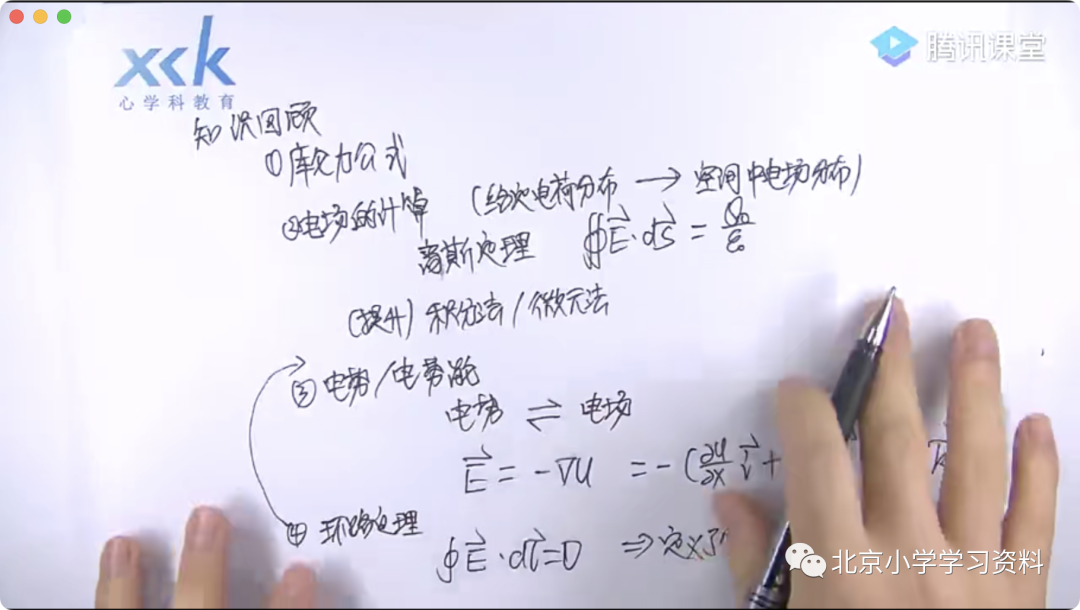 xck
心学科教育
腾讯课堂
知识回顾
①库仑力公式
②电场的计算 (给定电荷分布 → 空间中电场分布)
高斯定理 ∯E⃗·dS⃗ =
(提升) 积分法/微元法
③ 电势/电势能
电势 ⇌ 电场
E⃗ = -∇U = -(∂U/∂x i⃗ +
④ 环路定理
∮E⃗·dl⃗=0 ⇒定义了
北京小学学习资料